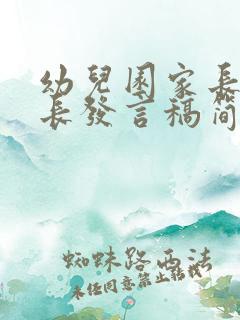 幼兒園家長
長發言稿簡
蜘蛛路西法
未任同意禁止轉載